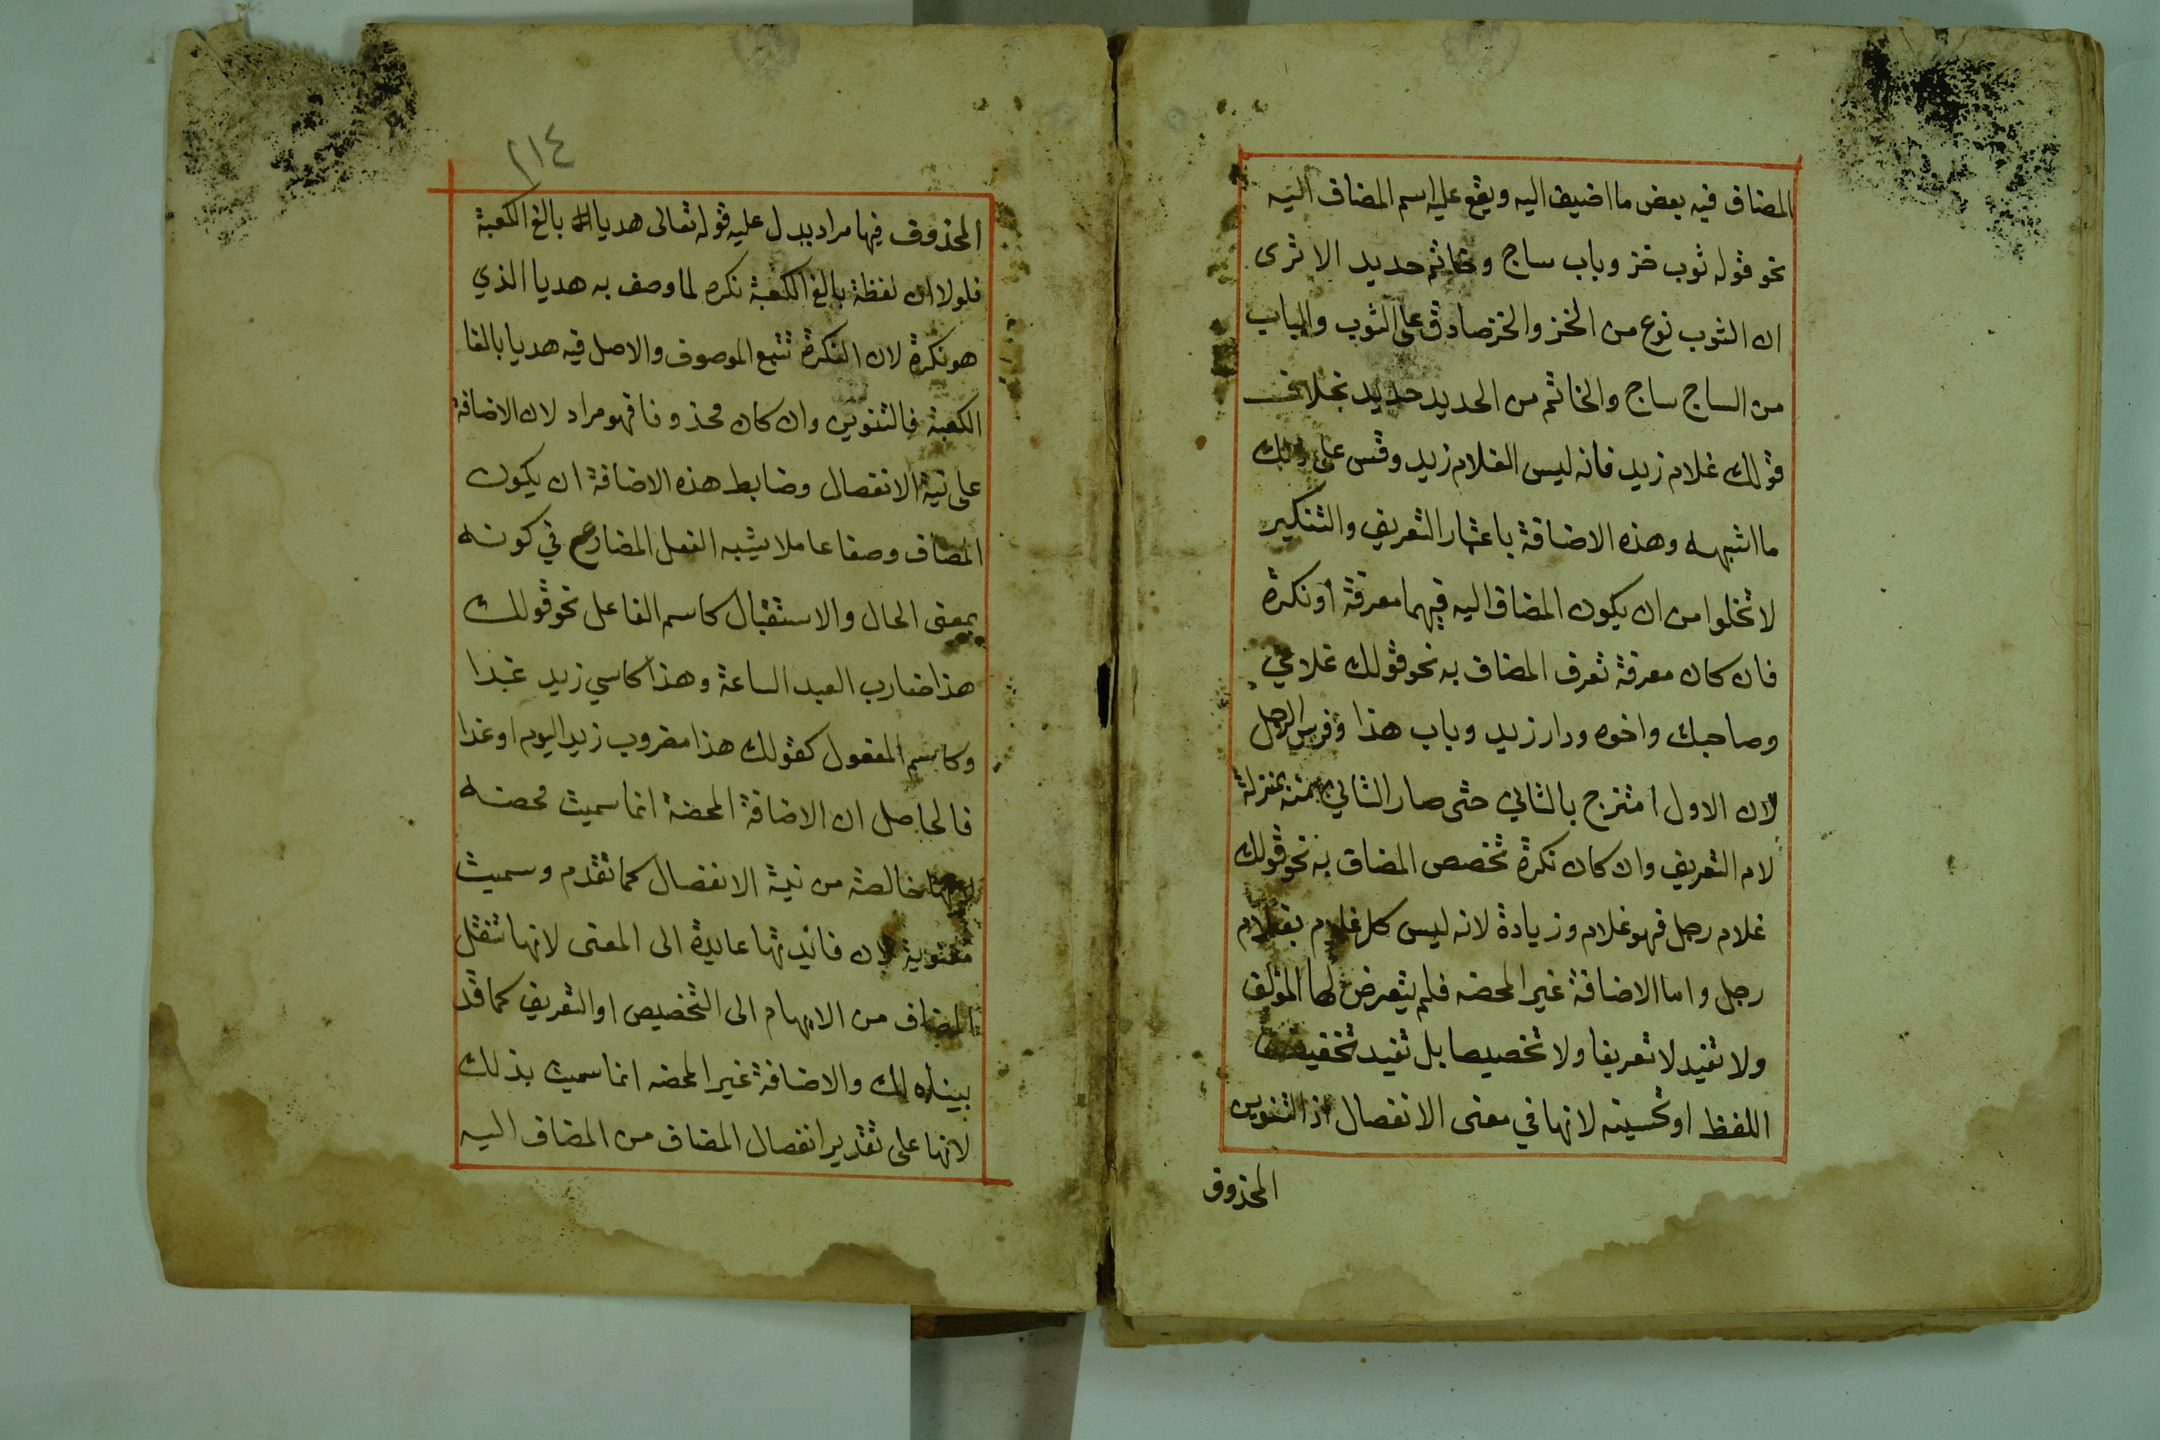 المضاف فيه بعض ما اضيف اليه ويقع عليه اسم المضاف اليه
نحو قوله ثوب خز وباب ساج وخاتم حديد الا ترى
ان الثوب نوع من الخز والخز صادق على الثوب والباب
من الساج ساج والخاتم من الحديد حديد بخلاف
قولك غلام زيد فانه ليس الغلام زيد وقس على ذلك
ما اشبهه وهذه الاضافة باعتبار التعريف والتنكير
لا تخلوا من ان يكون المضاف اليه فيهما معرفة او نكرة
فان كان معرفة تعرف المضاف به نحو قولك غلامي
وصاحبك واخوه ودار زيد وباب هذا وفرس الرجل
لان الاول امتزج بالثاني حتى صار الثاني منه بمنزلة
لام التعريف وان كان نكرة تخصص المضاف به نحو قولك
غلام رجل فهو غلام وزيادة لانه ليس كل غلام بغلام
رجل واما الاضافة غير المحضه فلم يتعرض لها المؤلف
ولا تفيد لا تعريفا ولا تخصيصا بل تفيد تخفيف
اللفظ او تحسينه لانها في معنى الانفصال اذ التنوين
المحذوف
٢١٤
المحذوف فيها مراد يدل عليه قوله تعالى هديا بالغ الكعبة
فلولا ان لفظة بالغ الكعبة نكره لما وصف به هديا الذي
هو نكرة لان النكرة تتبع الموصوف والاصل فيه هديا بالغا
الكعبة فالتنوين وان كان محذوفا فهو مراد لان الاضافة
على نية الانفصال وضابط هذه الاضافة ان يكون
المضاف وصفا عاملا يشبه الفعل المضارع في كونه
بمعنى الحال والاستقبال كاسم الفاعل نحو قولك
هذا ضارب العبد الساعة وهذا كاسي زيد غدا
وكاسم المفعول كقولك هذا مضروب زيد اليوم او غدا
فالحاصل ان الاضافة المحضة انما سميت محضه
لانها خالصة من نية الانفصال كما تقدم وسميت
معنوية لان فائدتها عايدة الى المعنى لانها تنقل
المضاف من الابهام الى التخصيص او التعريف كما قد
بيناه لك والاضافة غير المحضه انما سميت بذلك
لانها على تقدير انفصال المضاف من المضاف اليه